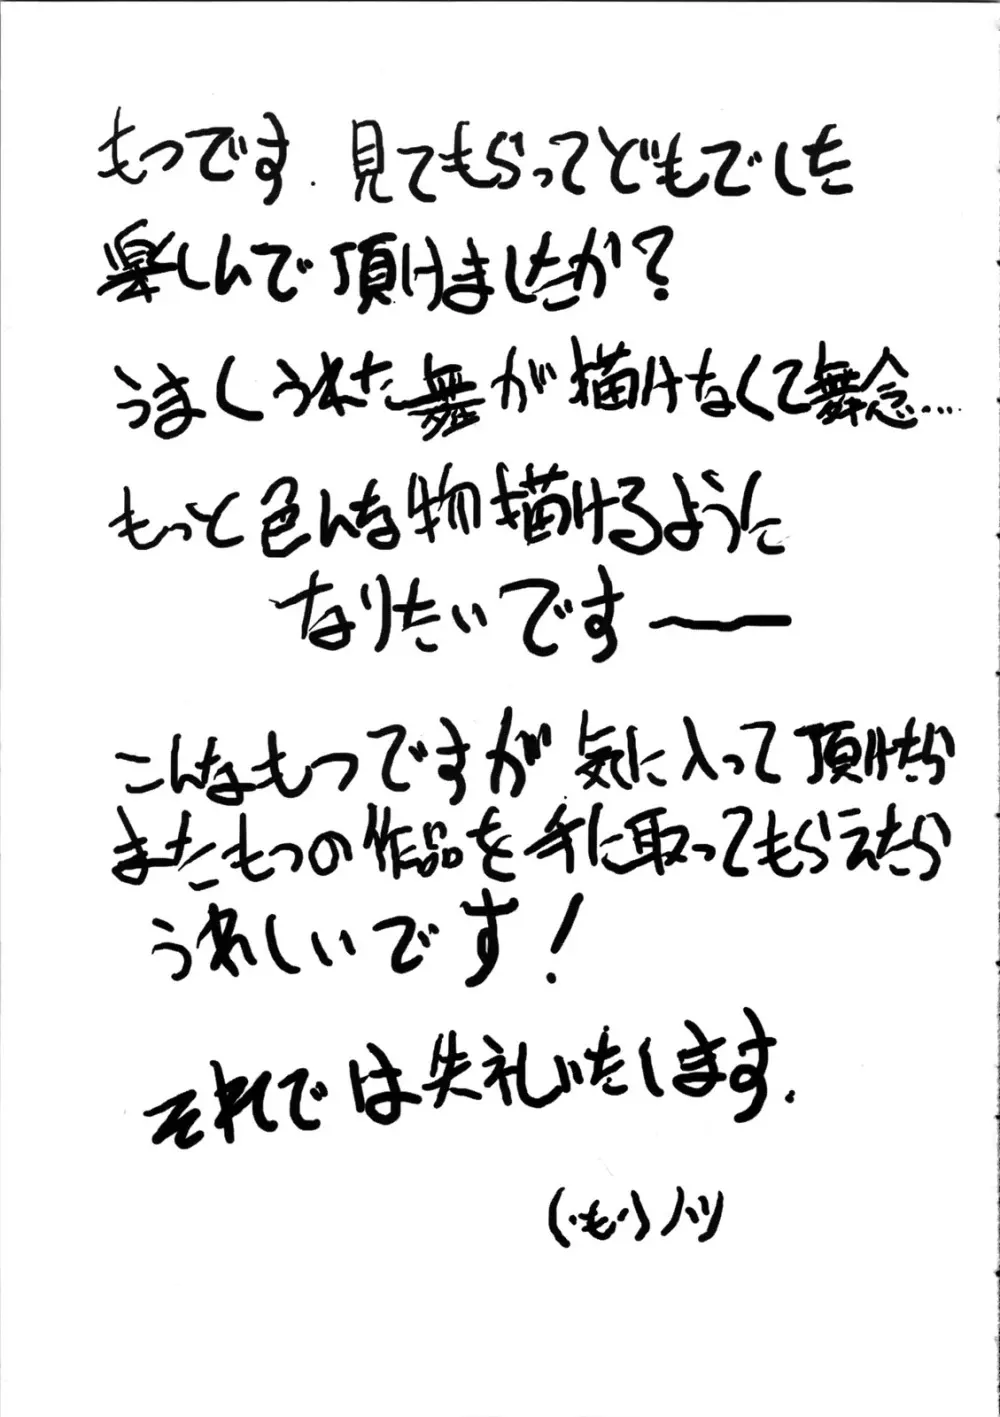 もつです. 見てもらってどもでした
楽しんで頂けましたか?
うまくうれた舞が描けなくて舞念…
もっと色んな物描けるように
なりたいですー
こんなもつですが気に入って頂けたら
またもつの作品を手に取ってもらえたら
うれしいです!
それでは失礼いたします.
(・も・)ノシ